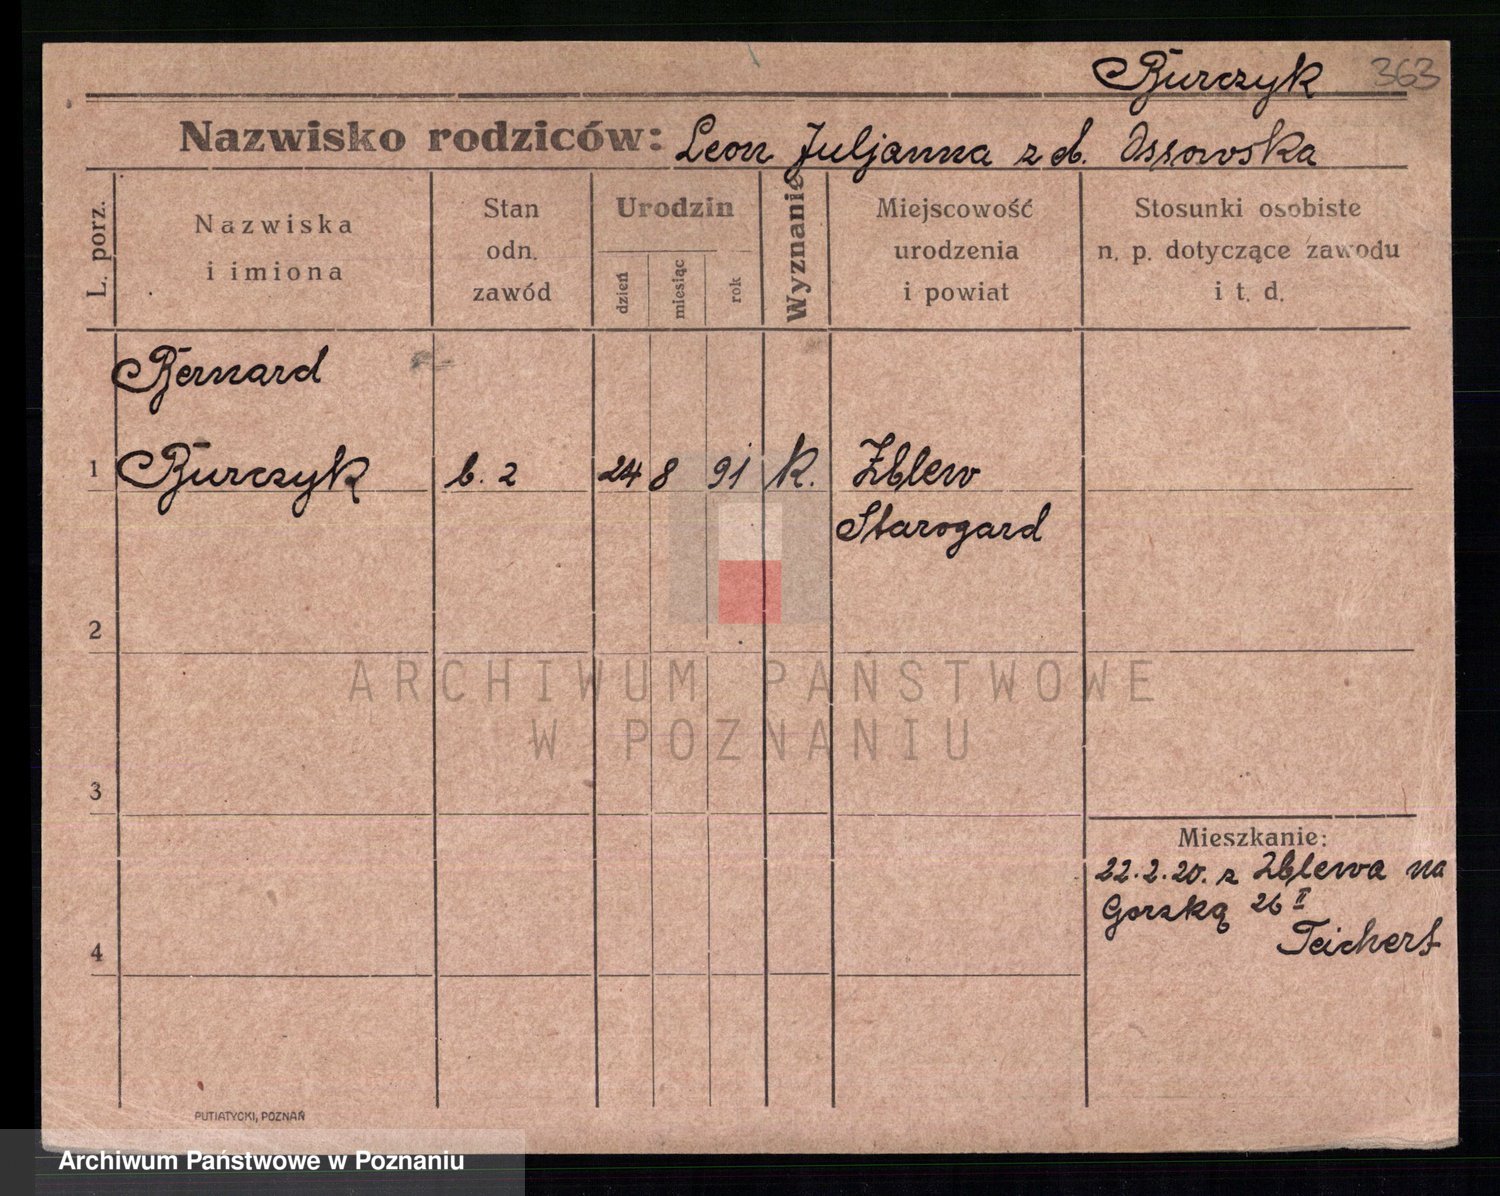 Burczyk 363
Nazwisko rodziców: Leon Juljanna z d. Ossowska
L. porz.
Nazwiska
i imiona
Stan
odn.
zawód
Urodzin
dzień
miesiąc
rok
Wyznanie
Miejscowość
urodzenia
i powiat
Stosunki osobiste
n. p. dotyczące zawodu
i t. d.
Bernard
1 Burczyk b. 2 24 8 91 k. Zblew
Starogard
2
ARCHIWUM PAŃSTWOWE
W POZNANIU
3
Mieszkanie:
22.2.20. z Zblewa na
Gorzką 26 II
Teichert
4
PUTIATYCKI, POZNAŃ
Archiwum Państwowe w Poznaniu